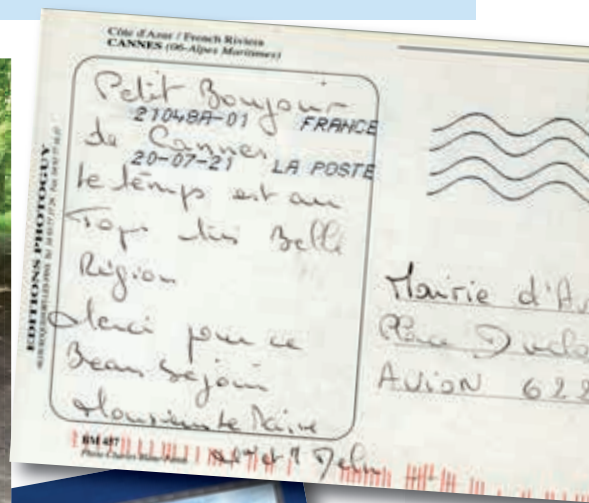 Côte d'Azur / French Riviera
CANNES (06-Alpes Maritimes)
Petit Boujour
21048A-01 FRANCE
de Cannes
20-07-21 LA POSTE
le temps est au
Top très Belle
Région
Merci pour ce
Beau séjour
Monsieur le Maire
EDITIONS PHOTOGUY
Mairie d'Av
Place Duclo
AVION 622